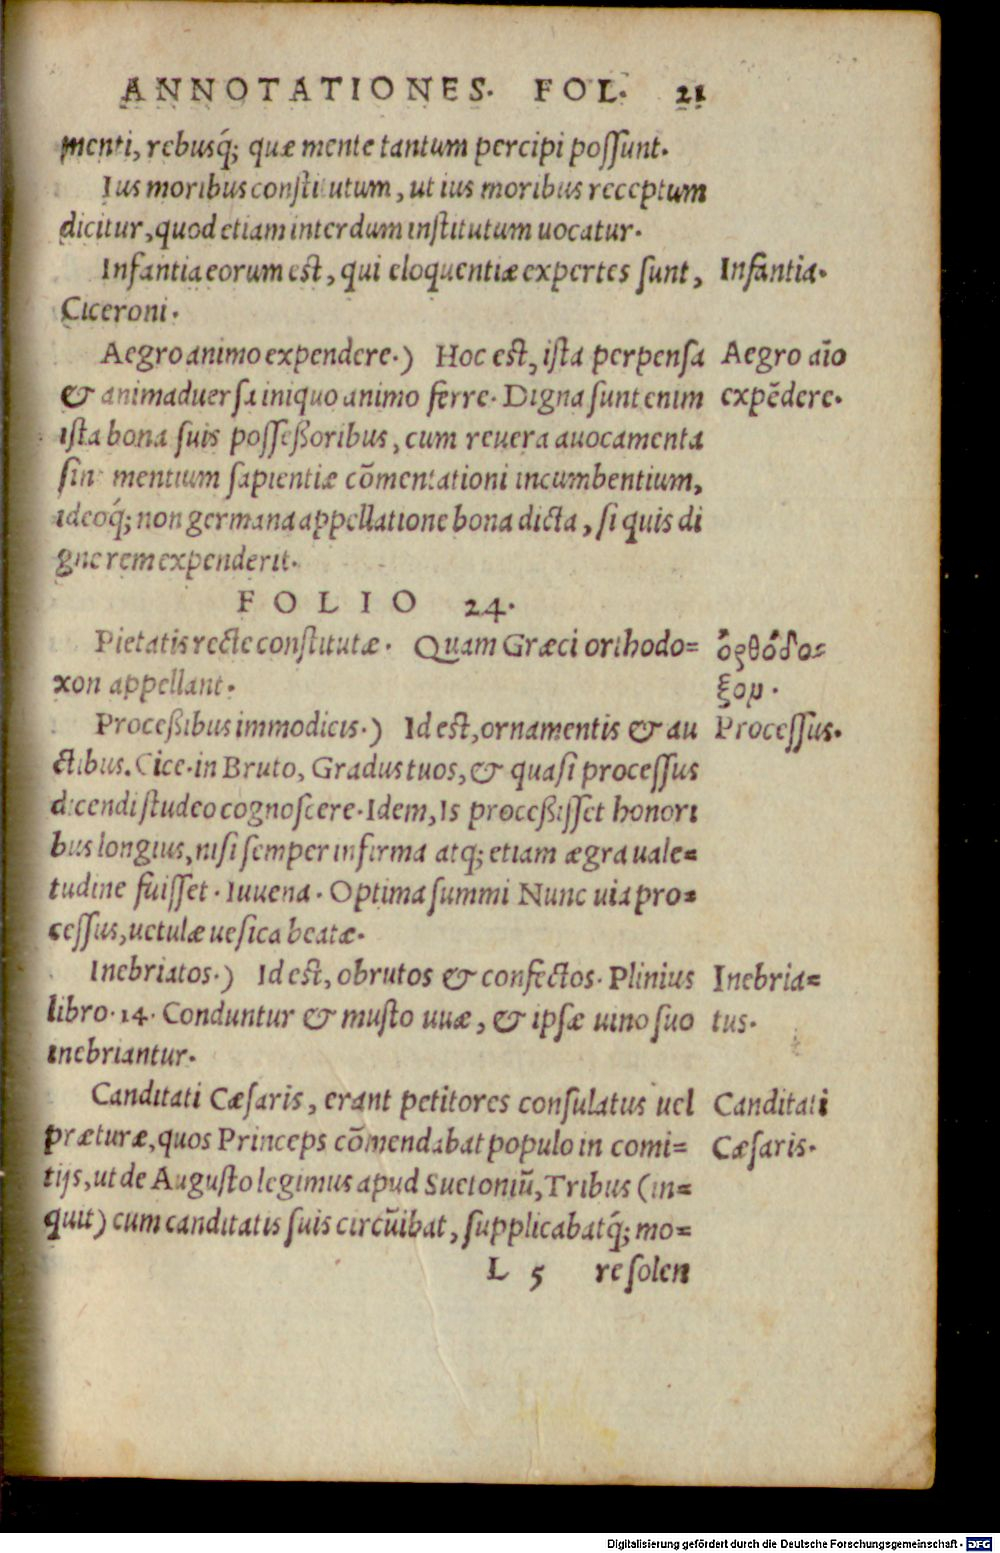 ANNOTATIONES. FOL. 21
menti, rebusq́; quæ mente tantum percipi poſſunt.
Ius moribus conſti utum, ut ius moribus receptum
dicitur, quod etiam interdum inſtitutum uocatur.
Infantia eorum eſt, qui eloquentiæ expertes ſunt, Infantia.
Ciceroni.
Aegro animo expendere.) Hoc eſt, iſta perpenſa Aegro aīo
& animaduerſa iniquo animo ferre. Digna ſunt enim expēdere.
iſta bona ſuis poſſeßoribus, cum reuera auocamenta
ſint mentium ſapientiæ cōmentationi incumbentium,
ideoq́; non germana appellatione bona dicta, ſi quis di
gne rem expenderit.
FOLIO 24.
Pietatis recte conſtitutæ. Quam Græci orthodo= ὀρθόδο=
xon appellant. ξον.
Proceßibus immodicis.) Id eſt, ornamentis & au Proceſſus.
ctibus. Cice. in Bruto, Gradus tuos, & quaſi proceſſus
dicendi ſtudeo cognoſcere. Idem, Is proceßiſſet honori
bus longius, niſi ſemper infirma atq; etiam ægra uale=
tudine fuiſſet. Iuuena. Optima ſummi Nunc uia pro=
ceſſus, uetulæ ueſica beatæ.
Inebriatos.) Id eſt, obrutos & confectos. Plinius Inebria=
libro. 14. Conduntur & muſto uuæ, & ipſæ uino ſuo tus.
inebriantur.
Canditati Cæſaris, erant petitores conſulatus uel Canditati
præturæ, quos Princeps cōmendabat populo in comi= Cæſaris.
tijs, ut de Auguſto legimus apud Suetoniū, Tribus (in=
quit) cum canditatis ſuis circūibat, ſupplicabatq́; mo=
L 5 re ſolen
Digitalisierung gefördert durch die Deutsche Forschungsgemeinschaft - DFG